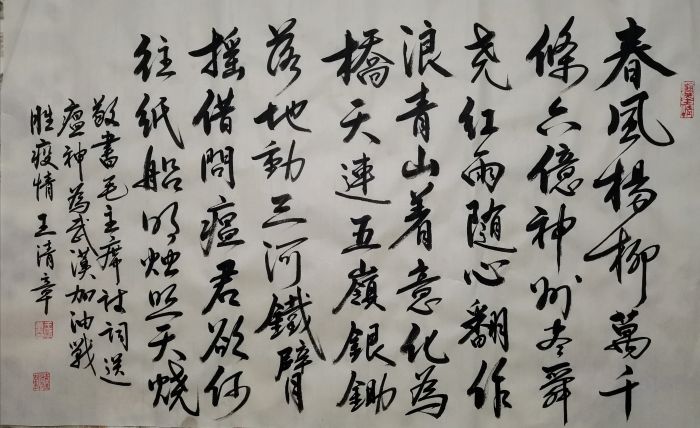 春風楊柳萬千
條六億神州尽舜
尧红雨随心翻作
浪青山着意化為
橋天連五嶺銀鋤
落地動三河鐵臂
摇借問瘟君欲何
往纸船明烛照天烧
敬書毛主席诗词送
瘟神為武漢加油戰
胜疫情 王清章